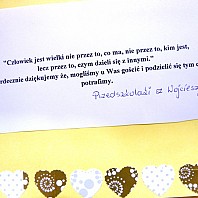 "Człowiek jest wielki nie przez to, co ma, nie przez to, kim jest,
lecz przez to, czym dzieli się z innymi."
erdecznie dziękujemy że, mogliśmy u Was gościć i podzielić się tym c
potrafimy.
Przedszkolaki z Wojciesz